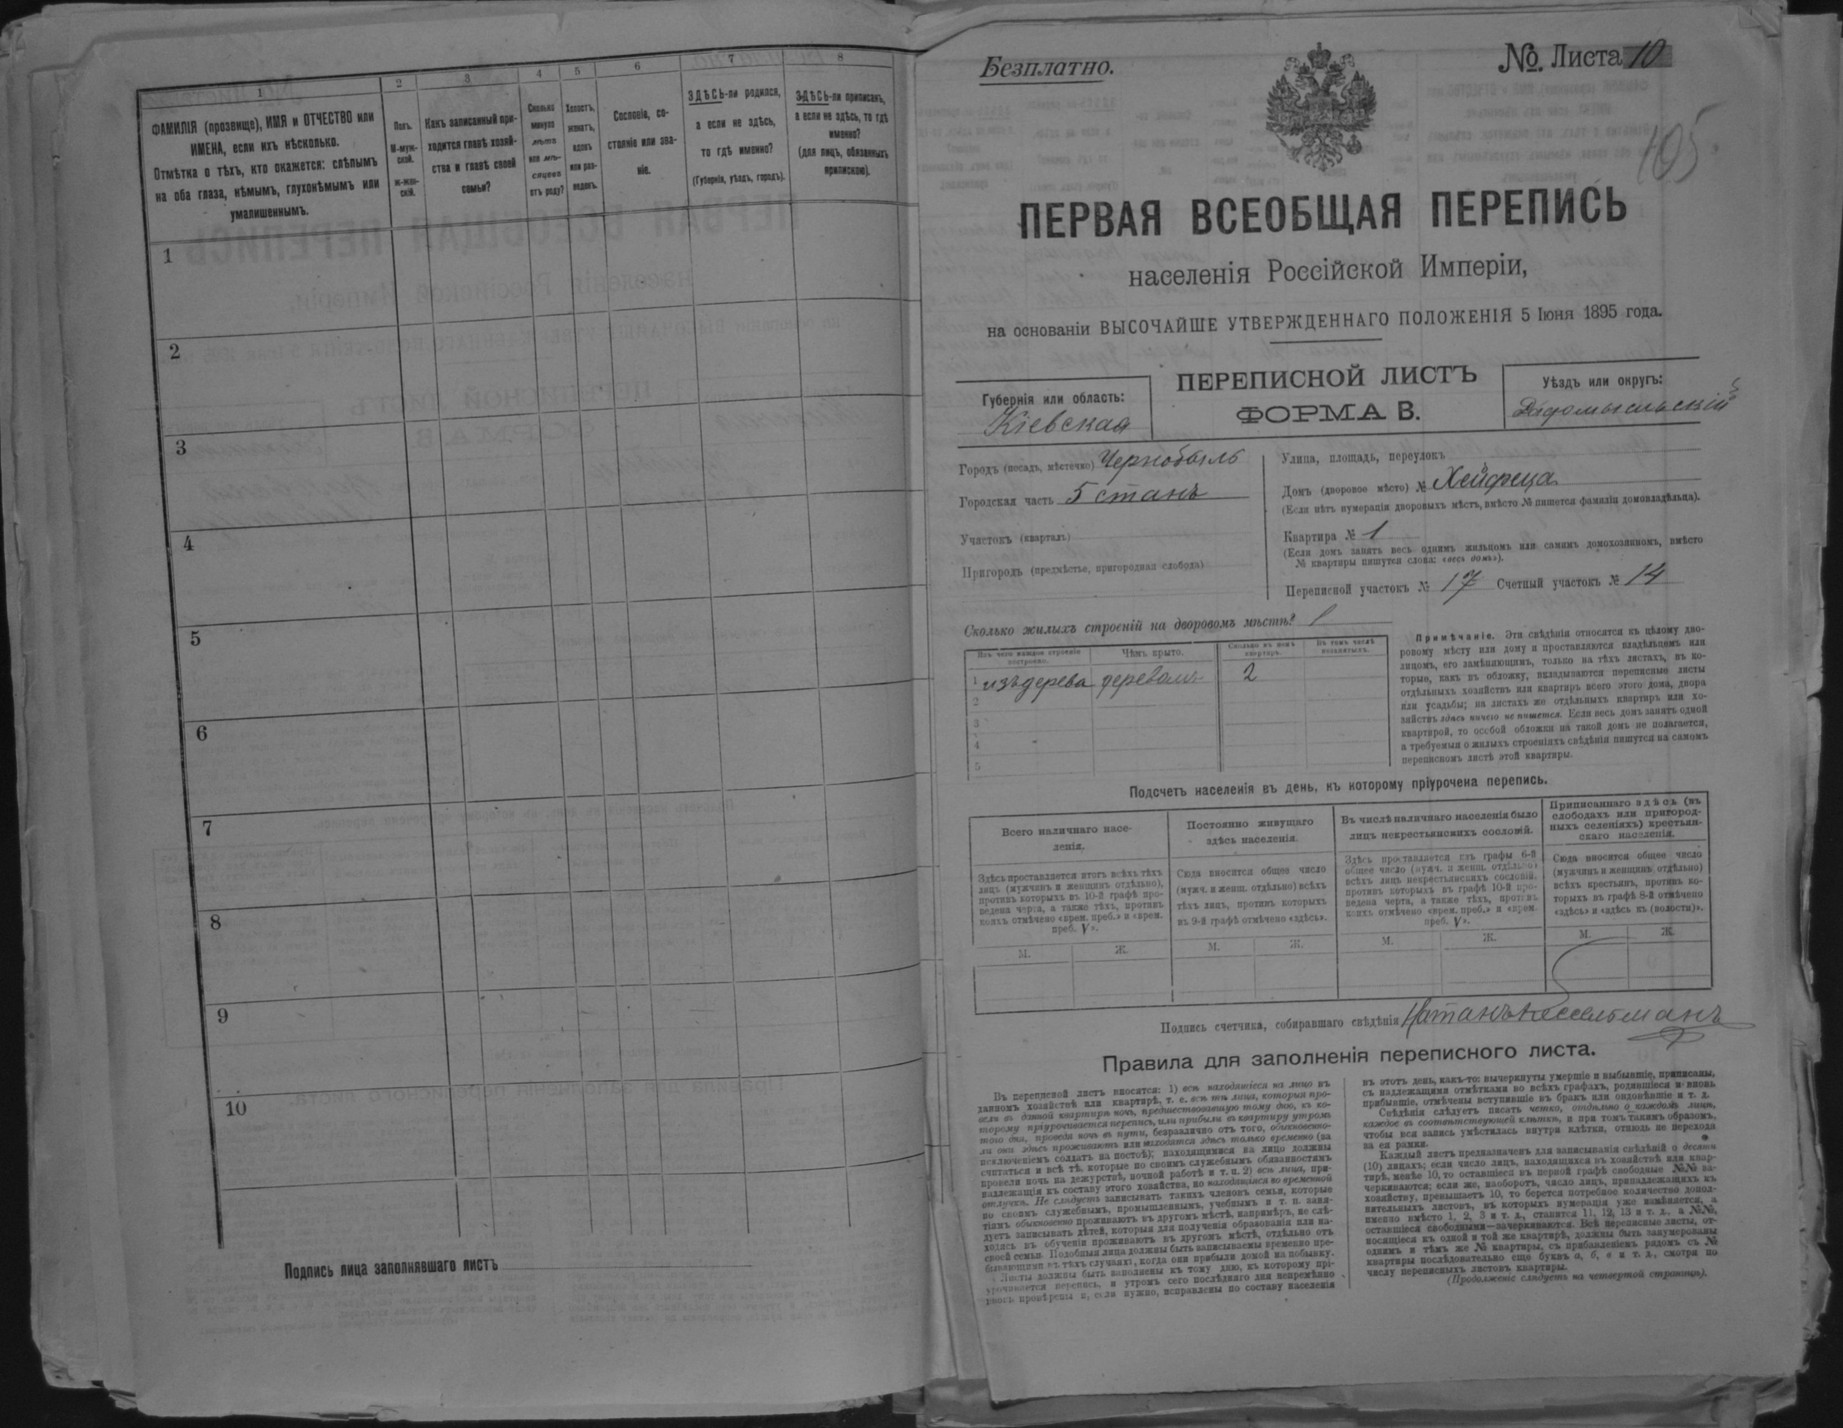 1
2
3
4
5
6
7
8
ФАМИЛІЯ (прозвище), ИМЯ и ОТЧЕСТВО или
ИМЕНА, если ихъ нѣсколько.
Отмѣтка о тѣхъ, кто окажется: слѣпымъ
на оба глаза, нѣмымъ, глухонѣмымъ или
умалишеннымъ.
Полъ.
М-муж-
ской.
ж-жен-
скій.
Какъ записанный при-
ходится главѣ хозяй-
ства и главѣ своей
семьи?
Сколько
минуло
лѣтъ
или мѣ-
сяцевъ
отъ роду?
Холостъ,
женатъ,
вдовъ
или раз-
веденъ.
Сословіе, со-
стояніе или зва-
ніе.
ЗДѢСЬ-ли родился,
а если не здѣсь,
то гдѣ именно?
(Губернія, уѣздъ, городъ).
ЗДѢСЬ-ли приписанъ,
а если не здѣсь, то гдѣ
именно?
(для лицъ, обязанныхъ
припискою).
1
2
3
4
5
6
7
8
9
10
Подпись лица заполнявшаго листъ
Безплатно.
№ Листа 10
105
ПЕРВАЯ ВСЕОБЩАЯ ПЕРЕПИСЬ
населенія Россійской Имперіи,
на основаніи ВЫСОЧАЙШЕ УТВЕРЖДЕННАГО ПОЛОЖЕНІЯ 5 Іюня 1895 года.
Губернія или область:
Кіевская
ПЕРЕПИСНОЙ ЛИСТЪ
ФОРМА В.
Уѣздъ или округъ:
Радомысльскій
Городъ (посадъ, мѣстечко) Чернобыль
Городская часть 5 станъ
Участокъ (кварталъ)
Пригородъ (предмѣстье, пригородная слобода)
Улица, площадь, переулокъ
Домъ (дворовое мѣсто) № Хейфеца
(Если нѣтъ нумераціи дворовыхъ мѣстъ, вмѣсто № пишется фамилія домовладѣльца).
Квартира № 1
(Если домъ занятъ весь однимъ жильцомъ или самимъ домохозяиномъ, вмѣсто
№ квартиры пишутся слова: «весь домъ»).
Переписной участокъ № 17 Счетный участокъ № 14
Сколько жилыхъ строеній на дворовомъ мѣстѣ? 1
Изъ чего каждое строеніе
построено.
Чѣмъ крыто.
Сколько въ немъ
квартиръ.
Въ томъ числѣ
незанятыхъ.
1 изъ дерева деревомъ 2
2
3
4
5
Примѣчаніе. Эти свѣдѣнія относятся къ цѣлому дво-
ровому мѣсту или дому и проставляются владѣльцомъ или
лицомъ, его замѣняющимъ, только на тѣхъ листахъ, въ ко-
торые, какъ въ обложку, вкладываются переписные листы
отдѣльныхъ хозяйствъ или квартиръ всего этого дома, двора
или усадьбы; на листахъ же отдѣльныхъ квартиръ или хо-
зяйствъ здѣсь ничего не пишется. Если весь домъ занятъ одной
квартирой, то особой обложки на такой домъ не полагается,
а требуемыя о жилыхъ строеніяхъ свѣдѣнія пишутся на самомъ
переписномъ листѣ этой квартиры.
Подсчетъ населенія въ день, къ которому пріурочена перепись.
Всего наличнаго насе-
ленія.
Постоянно живущаго
здѣсь населенія.
Въ числѣ наличнаго населенія было
лицъ некрестьянскихъ сословій.
Приписаннаго здѣсь (въ
слободахъ или пригород-
ныхъ селеніяхъ) крестьян-
скаго населенія.
Здѣсь проставляется итогъ всѣхъ тѣхъ
лицъ (мужчинъ и женщинъ отдѣльно),
противъ которыхъ въ 10-й графѣ про-
ведена черта, а также тѣхъ, противъ
коихъ отмѣчено «врем. преб.» и «врем.
преб. V».
Сюда вносится общее число
(мужч. и женщ. отдѣльно) всѣхъ
тѣхъ лицъ, противъ которыхъ
въ 9-й графѣ отмѣчено «здѣсь».
Здѣсь проставляется изъ графы 6-й
общее число (мужч. и женщ. отдѣльно)
всѣхъ лицъ некрестьянскихъ сословій,
противъ которыхъ въ графѣ 10-й про-
ведена черта, а также тѣхъ, противъ
коихъ отмѣчено «врем. преб.» и «врем.
преб. V».
Сюда вносится общее число
(мужчинъ и женщинъ отдѣльно)
всѣхъ крестьянъ, противъ ко-
торыхъ въ графѣ 8-й отмѣчено
«здѣсь» и «здѣсь къ (волости)».
М.
Ж.
М.
Ж.
М.
Ж.
М.
Ж.
Подпись счетчика, собиравшаго свѣдѣнія Натанъ Кессельманъ
Правила для заполненія переписного листа.
Въ переписной листъ вносятся: 1) всѣ находящіеся на лицо въ
данномъ хозяйствѣ или квартирѣ, т. е. всѣ тѣ лица, которыя про-
вели въ данной квартирѣ ночь, предшествовавшую тому дню, къ ко-
торому пріурочивается перепись, или прибыли въ квартиру утромъ
того дня, проведя ночь въ пути, безразлично отъ того, обыкновенно-
ли они здѣсь проживаютъ или находятся здѣсь только временно (за
исключеніемъ солдатъ на постоѣ); находящимися на лицо должны
считаться и всѣ тѣ, которые по своимъ служебнымъ обязанностямъ
провели ночь на дежурствѣ, ночной работѣ и т. п. 2) всѣ лица, при-
надлежащія къ составу этого хозяйства, но находящіяся во временной
отлучкѣ. Не слѣдуетъ записывать такихъ членовъ семьи, которые
по своимъ служебнымъ, промышленнымъ, учебнымъ и т. п. заня-
тіямъ обыкновенно проживаютъ въ другомъ мѣстѣ, напримѣръ, не слѣ-
дуетъ записывать дѣтей, которыя для полученія образованія или на-
ходясь въ обученіи проживаютъ въ другомъ мѣстѣ, отдѣльно отъ
своей семьи. Подобныя лица должны быть записываемы временно пре-
бывающими въ тѣхъ случаяхъ, когда они прибыли домой на побывку.
Листы должны быть заполнены къ тому дню, къ которому прі-
урочивается перепись, и утромъ сего послѣдняго дня непремѣнно
вновь провѣрены и, если нужно, исправлены по составу населенія
въ этотъ день, какъ-то: вычеркнуты умершіе и выбывшіе, приписаны,
съ надлежащими отмѣтками во всѣхъ графахъ, родившіеся и вновь
прибывшіе, отмѣчены вступившіе въ бракъ или овдовѣвшіе и т. д.
Свѣдѣнія слѣдуетъ писать четко, отдѣльно о каждомъ лицѣ,
каждое въ соотвѣтствующей клѣткѣ, и при томъ такимъ образомъ,
чтобы вся запись умѣстилась внутри клѣтки, отнюдь не переходя
за ея рамки.
Каждый листъ предназначенъ для записыванія свѣдѣній о десяти
(10) лицахъ; если число лицъ, находящихся въ хозяйствѣ или квар-
тирѣ, менѣе 10, то оставшіеся въ первой графѣ свободные №№ за-
черкиваются; если же, наоборотъ, число лицъ, принадлежащихъ къ
хозяйству, превышаетъ 10, то берется потребное количество допол-
нительныхъ листовъ, въ которыхъ нумерація уже измѣняется, а
именно вмѣсто 1, 2, 3 и т. д., ставится 11, 12, 13 и т. д., а №№,
остающіеся свободными—зачеркиваются. Всѣ переписные листы, от-
носящіеся къ одной и той же квартирѣ, должны быть занумерованы
однимъ и тѣмъ же № квартиры, съ прибавленіемъ рядомъ съ №
квартиры послѣдовательно еще буквъ а, б, в и т. д., смотря по
числу переписныхъ листовъ квартиры.
(Продолженіе слѣдуетъ на четвертой страницѣ).